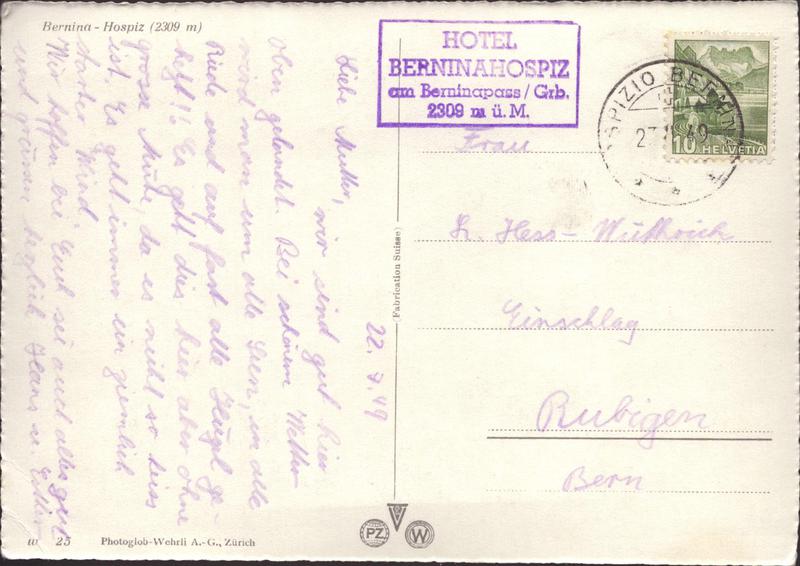 Bernina - Hospiz (2309 m)
HOTEL
BERNINAHOSPIZ
am Berninapass / Grb.
2309 m ü. M.
OSPIZIO BERNINA
49
10 HELVETIA
22. 7. 49
Liebe Mutter,
wir sind gut hier
oben gelandet. Bei schönem Wetter
wird man um alle Seen, in alle
und auf fast alle Hügel ge-
hetzt!! Es geht dies hier aber ohne
grosse Mühe, da es nicht so heiss
ist. Es geht immer ein ziemlich
starker Wind.
Wir hoffen bei Euch sei auch alles gut
und grüssen herzlich Hans u.
Frau
Hess-Wüthrich
Einschlag
Rubigen
Bern
(Fabrication Suisse)
PZ
W
w 25 Photoglob-Wehrli A.-G., Zürich